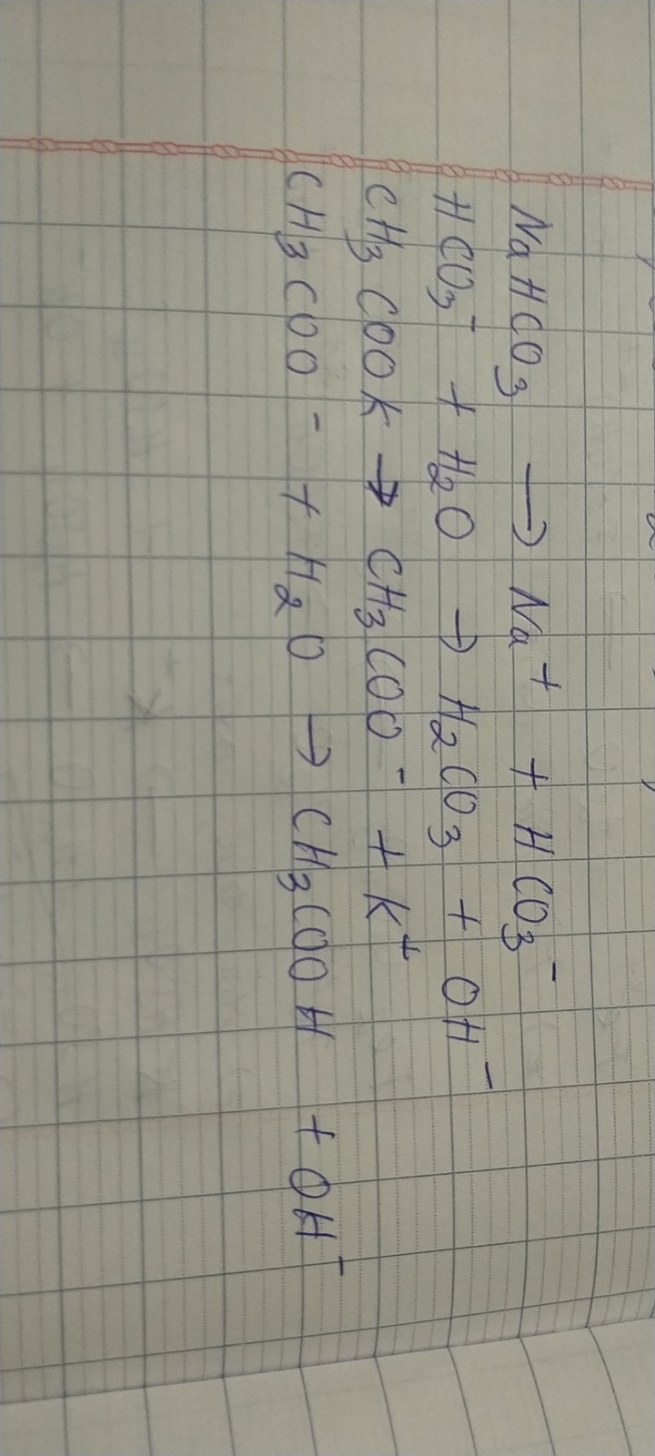 NaHCO3 → Na+ + HCO3-
HCO3- + H2O → H2CO3 + OH-
CH3COOK → CH3COO- + K+
CH3COO- + H2O → CH3COOH + OH-